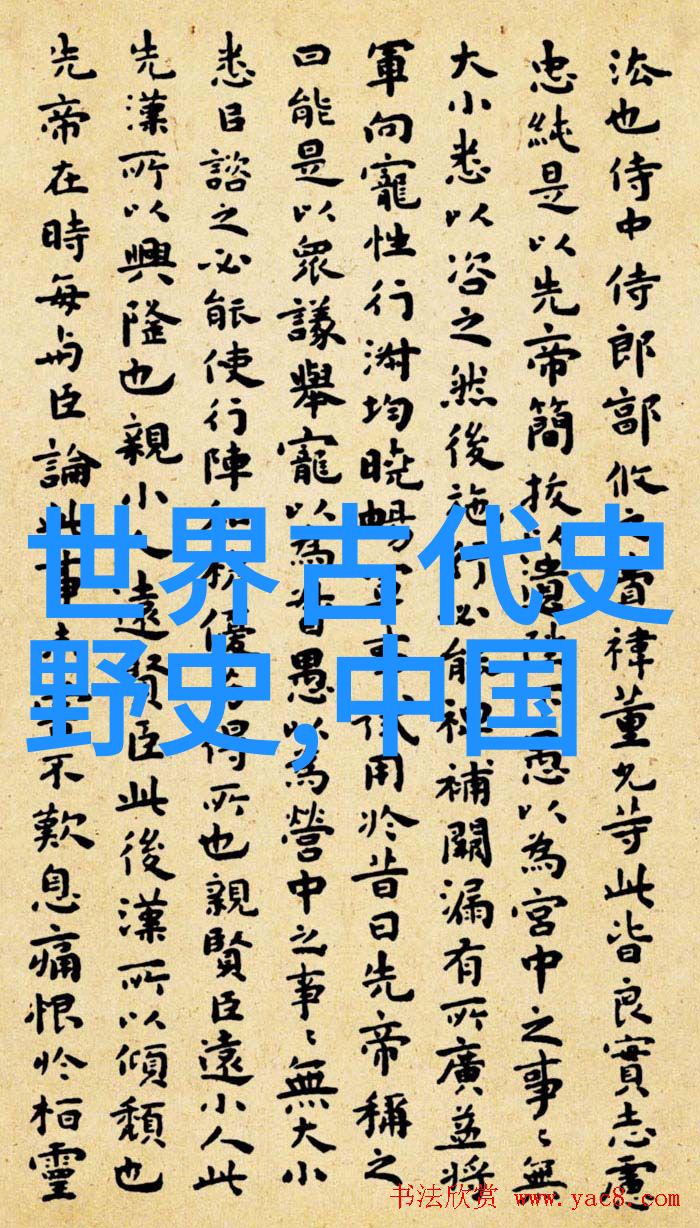 法也侍中侍郎郭攸之費禕董允等此皆良實志慮
忠純是以先帝簡拔以遺陛愚以為宮中之事〻無
大小悉以咨之然後施行必能裨補闕漏有所廣益將
軍向寵性行淑均曉暢軍事試用於昔日先帝稱之
曰能是以眾議舉寵以為督愚以為營中之事〻無大小
悉以諮之必能使行陣和穆優劣得所也親賢臣遠小人此
先漢所以興隆也親小人遠賢臣此後漢所以傾頹也
先帝在時每与臣論此事未不歎息痛恨於桓靈
世界古代史
野史,中国
书法欣赏 www.yac8.com